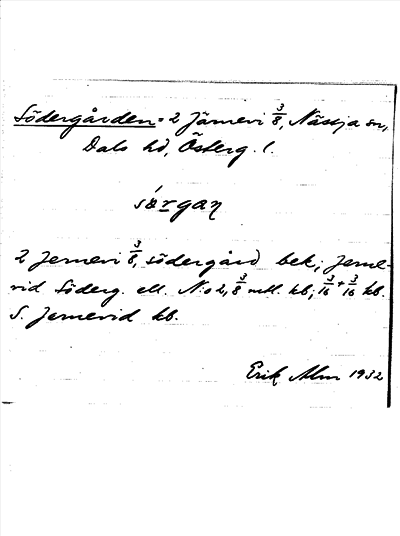 Södergården = 2 Järnevi 3/8, Nässja sn,
Dals hd, Österg. l.
2 Jernevi 3/8, södergård bek; Jerne-
vid Söderg. ell. N:o 2, 3/8 mtl. kb; 3/16 + 3/16 kb.
S. Jernevid kb.
Erik Alm 1932